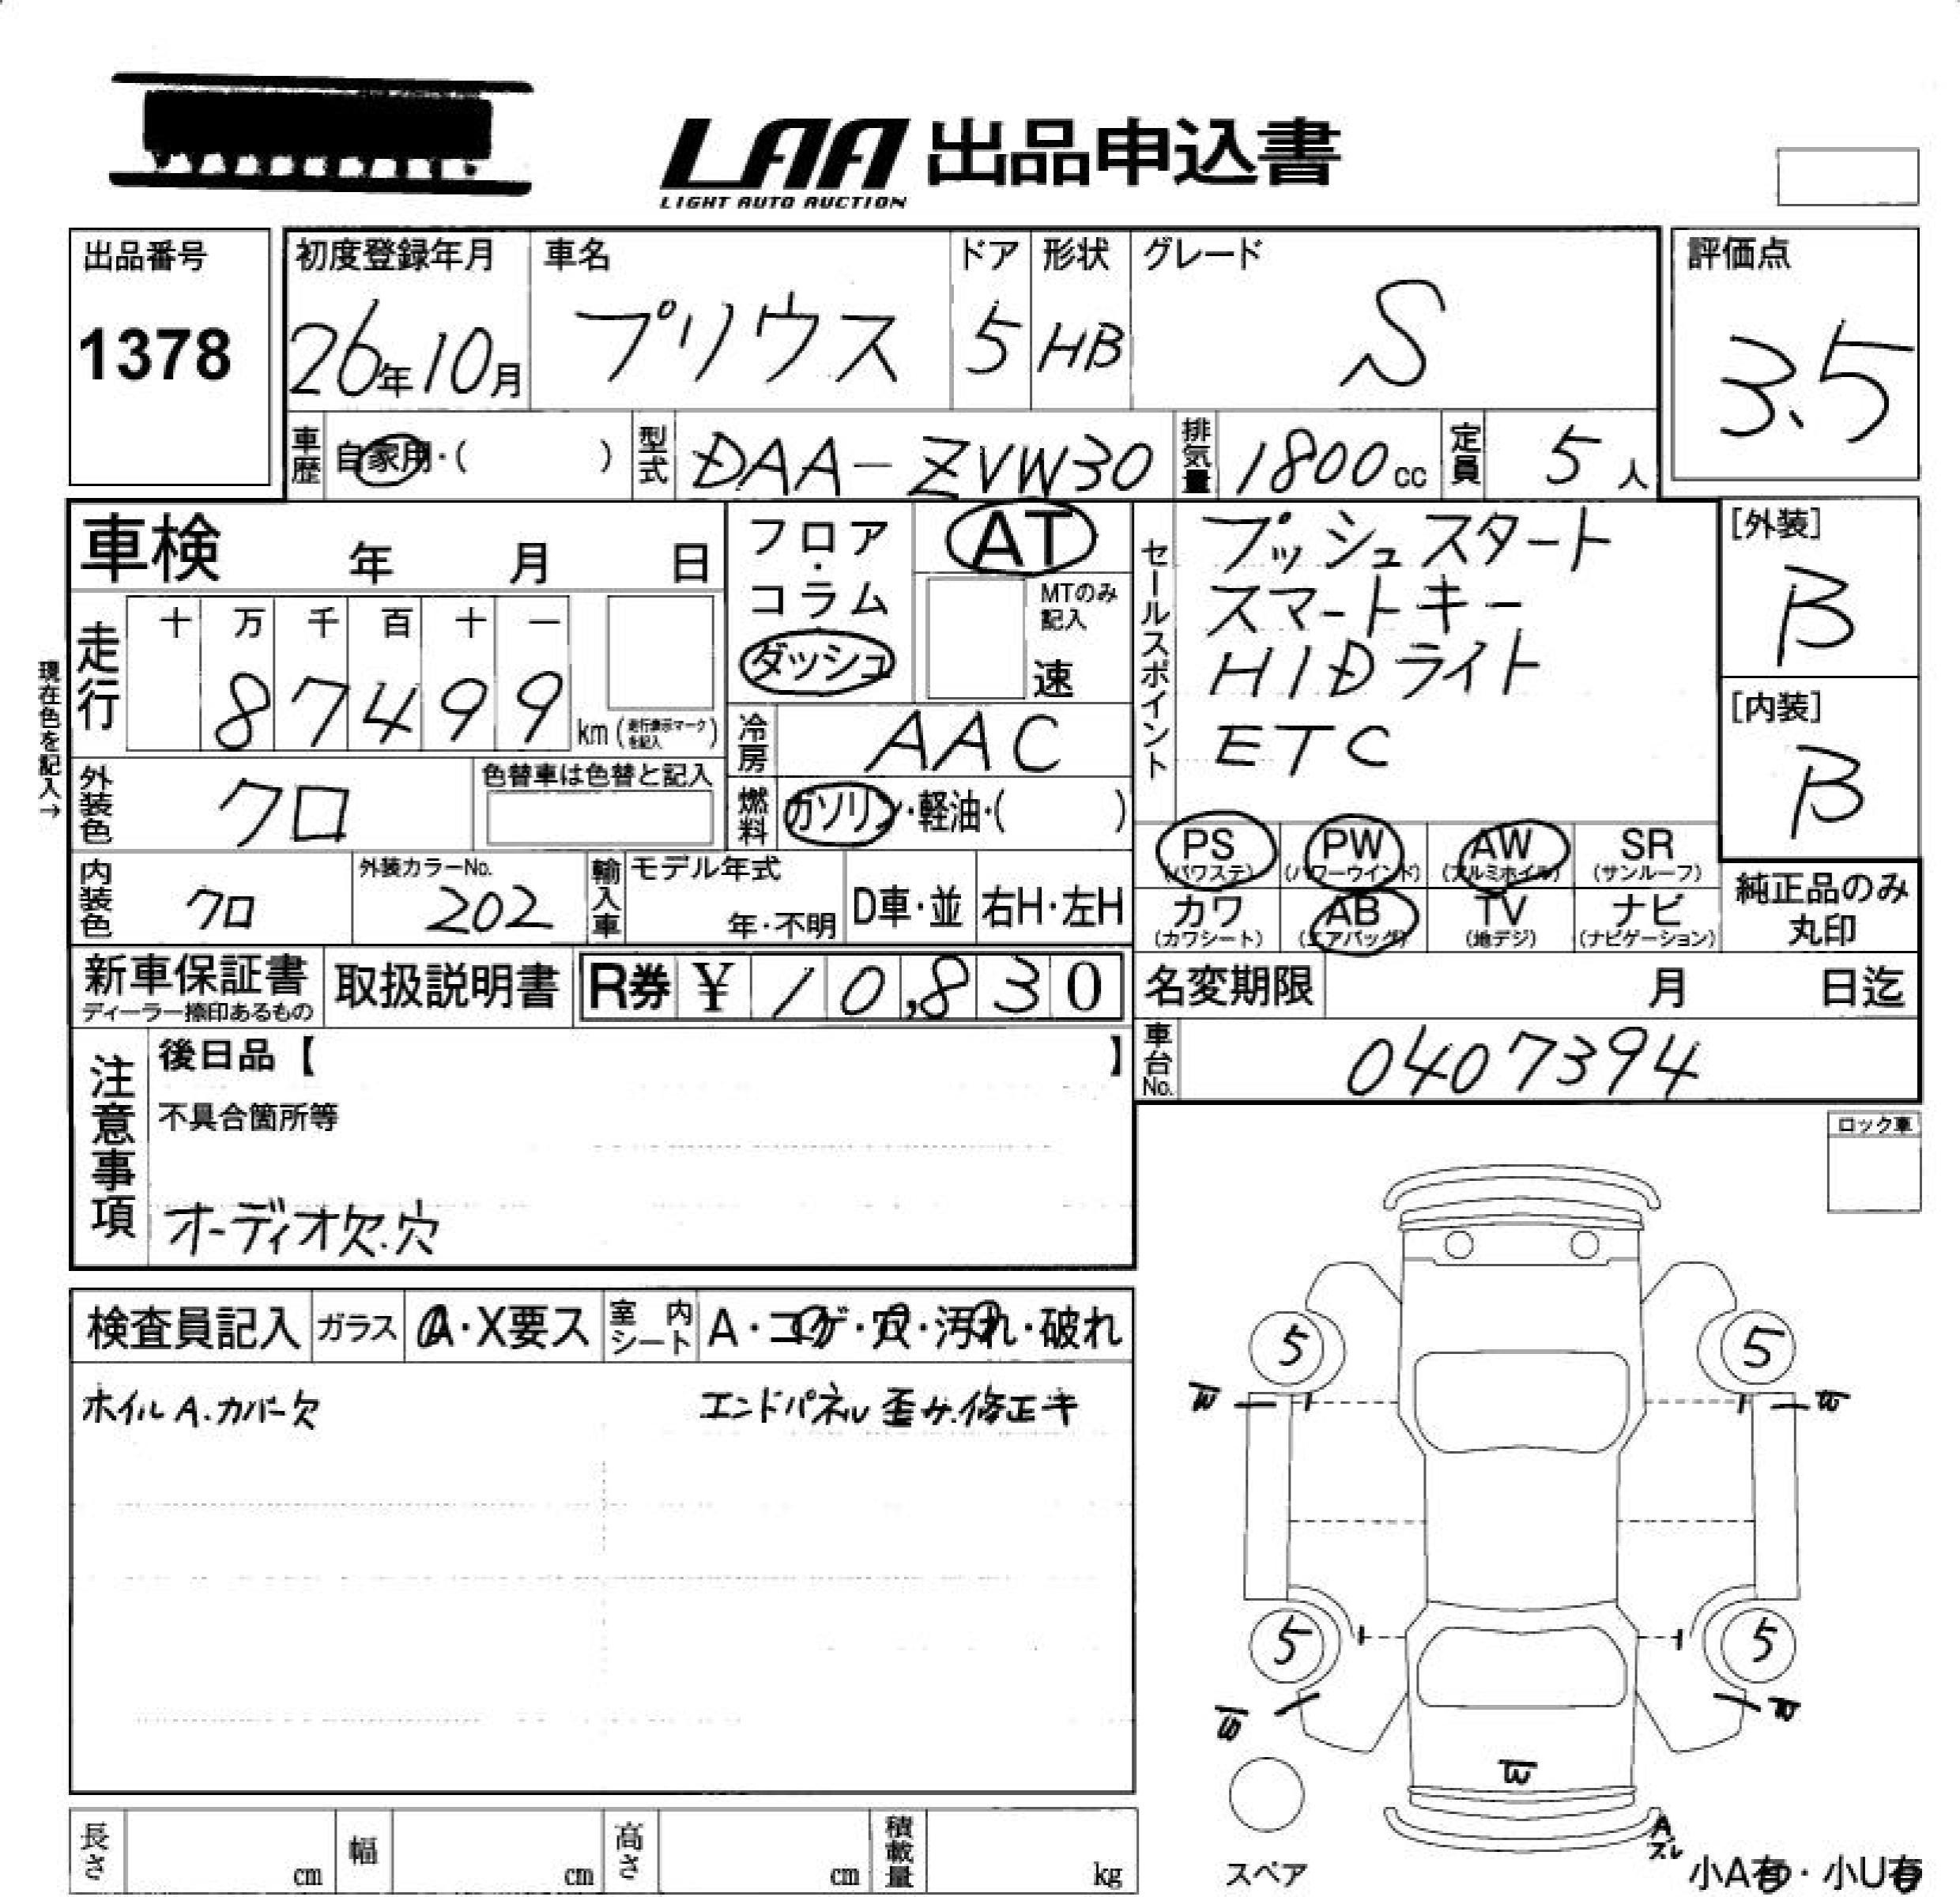 LAA 出品申込書
LIGHT AUTO AUCTION
出品番号
1378
初度登録年月
26年10月
車名
プリウス
ドア
5
形状
HB
グレード
S
評価点
3.5
車歴 自家用・( )
型式 DAA-ZVW30
排気量 1800cc
定員 5人
車検 年 月 日
現在色を記入→
走行
十 万 千 百 十 一
87499
km(走行表示マークを記入)
フロア・コラム・ダッシュ
AT
MTのみ記入
速
冷房 AAC
燃料 ガソリン・軽油・( )
外装色 クロ
色替車は色替と記入
内装色 クロ
外装カラーNo.
202
輸入車
モデル年式
年・不明
D車・並
右H・左H
セールスポイント
プッシュスタート
スマートキー
HIDライト
ETC
[外装]
B
[内装]
B
PS AW PW SR
(パワステ) (パワーウインド) (アルミホイル) (サンルーフ)
カワ AB TV ナビ
(カワシート) (エアバッグ) (地デジ) (ナビゲーション)
純正品のみ
丸印
新車保証書
ディーラー捺印あるもの
取扱説明書
R券 ¥10,830
名変期限 月 日迄
車台No. 0407394
注意事項
後日品【 】
不具合箇所等
オーディオ欠.穴
ロック車
検査員記入
ガラス A・X要ス
室内シート A・コゲ・穴・汚れ・破れ
ホイルA.カバー欠
エンドパネル歪み.修正キ
5 5
5 5
A
ズレ
スペア
小A有・小U有
長さ cm
幅 cm
高さ cm
積載量 kg